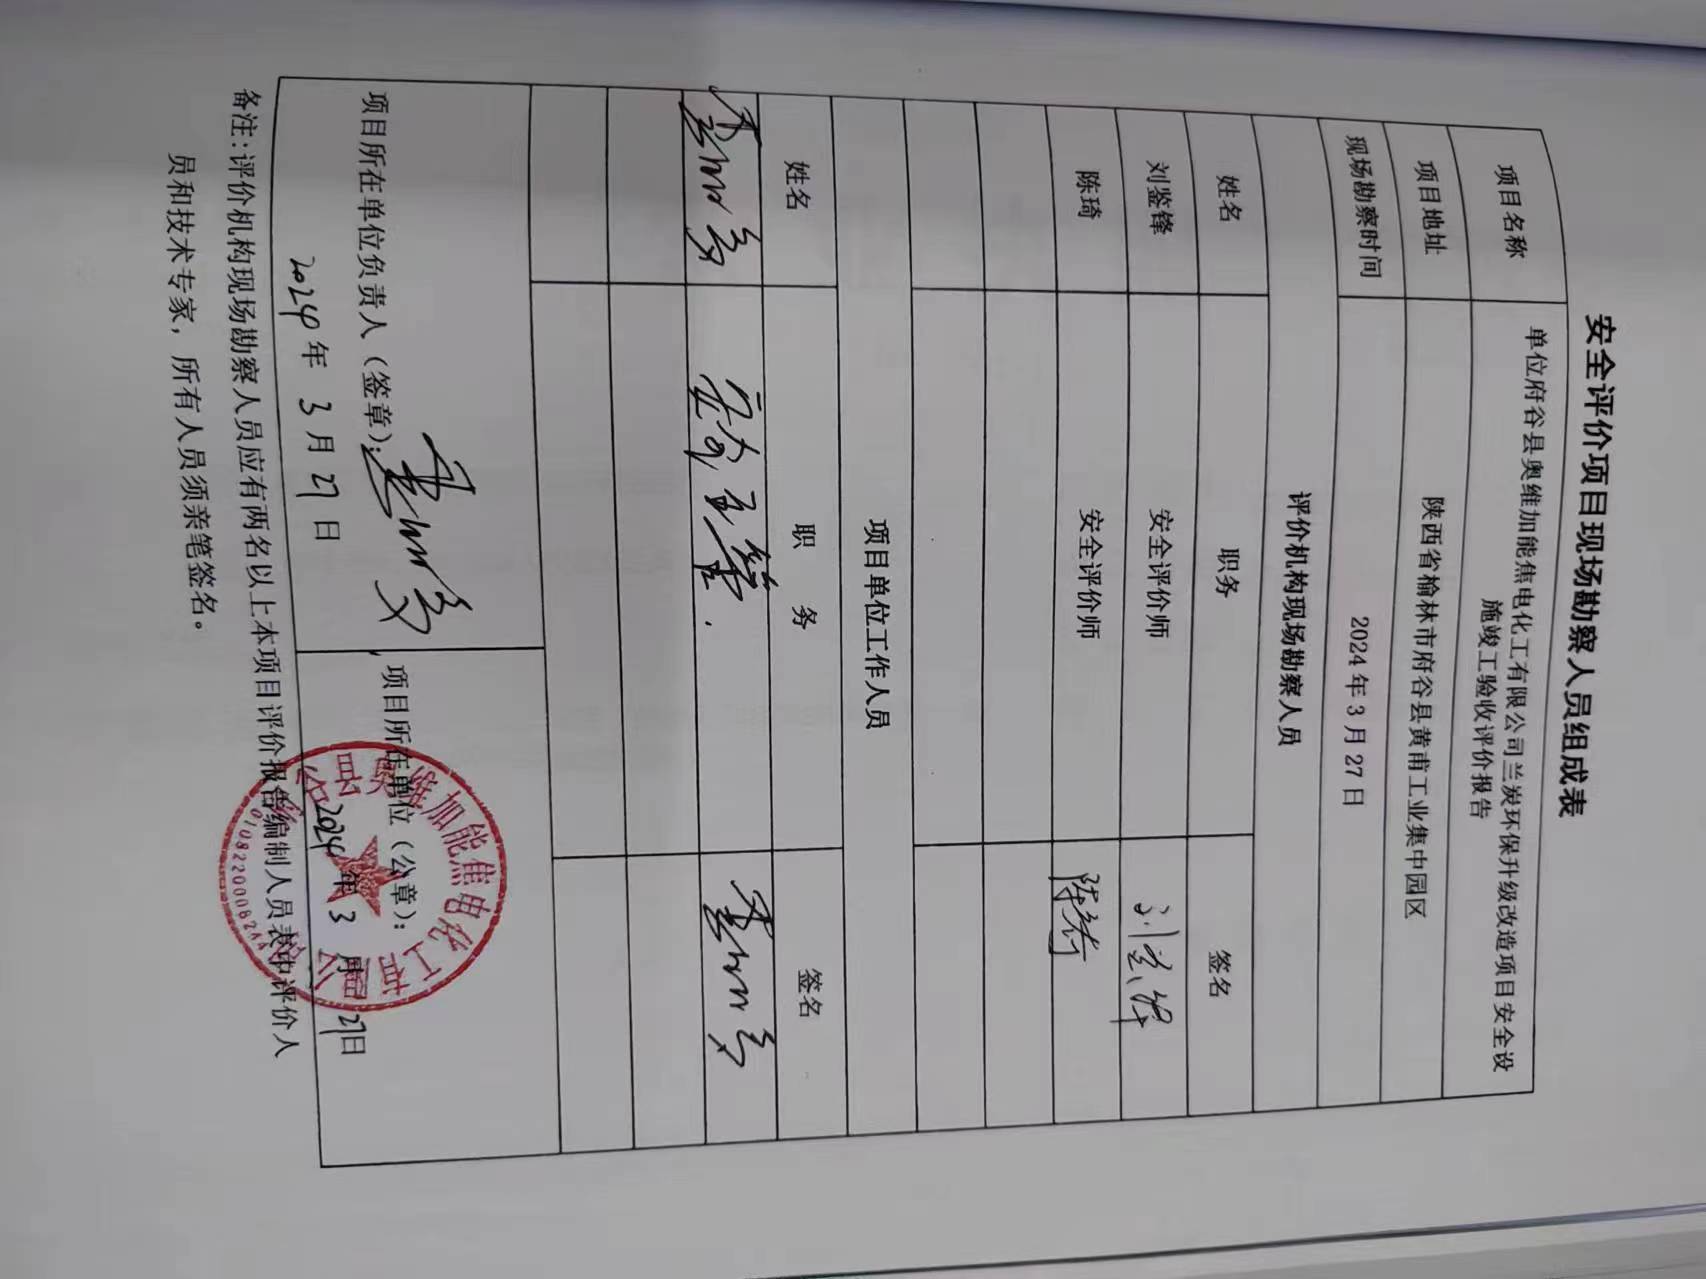 安全评价项目现场勘察人员组成表
项目名称 单位府谷县奥维加能焦电化工有限公司兰炭环保升级改造项目安全设
施竣工验收评价报告
项目地址 陕西省榆林市府谷县黄甫工业集中园区
现场勘察时间 2024年3月27日
评价机构现场勘察人员
姓名 职务 签名
刘鉴锋 安全评价师 刘鉴锋
陈琦 安全评价师 陈琦
项目单位工作人员
姓名 职务 签名
项目所在单位负责人（签章）： 项目所在单位（公章）：
2024年3月27日 2024年3月27日
府谷县奥维加能焦电化工有限公司
备注：评价机构现场勘察人员应有两名以上本项目评价报告编制人员表中评价人
员和技术专家，所有人员须亲笔签名。